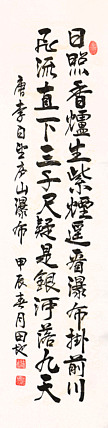 日照香爐生紫煙遥看瀑布掛前川
飛流直下三千尺疑是銀河落九天
唐李白望庐山瀑布 甲辰春月田